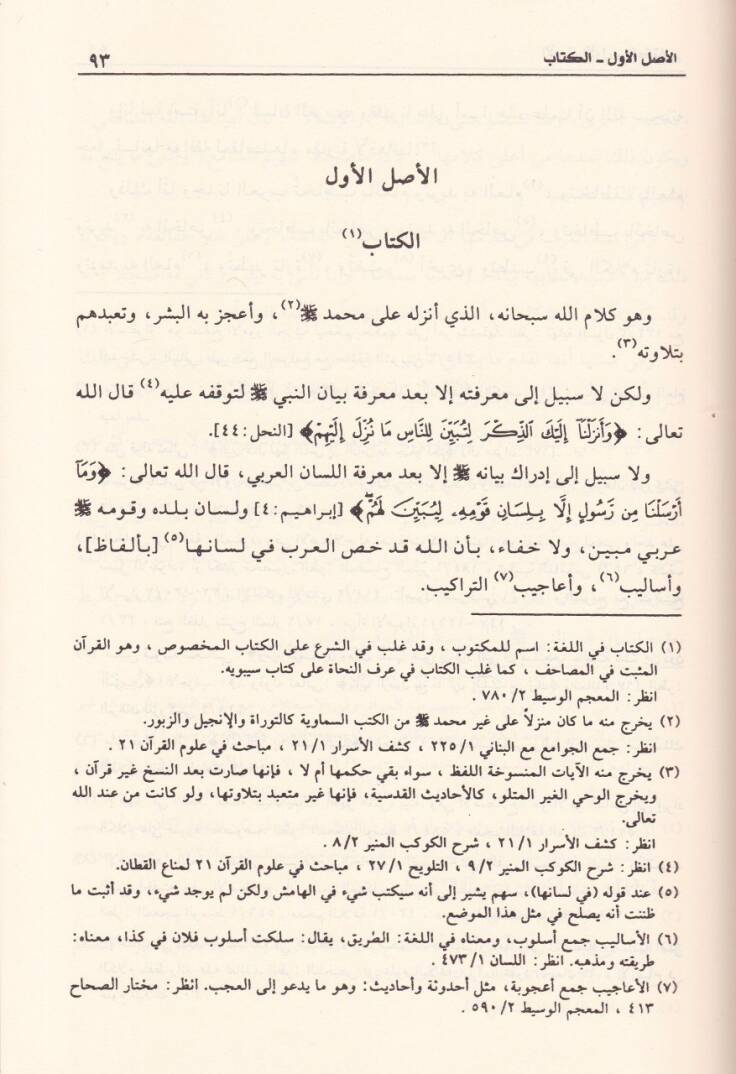 الأصل الأول - الكتاب
٩٣
الأصل الأول
الكتاب(١)
وهو كلام الله سبحانه، الذي أنزله على محمد ﷺ(٢)، وأعجز به البشر، وتعبدهم
بتلاوته(٣).
ولكن لا سبيل إلى معرفته إلا بعد معرفة بيان النبي ﷺ لتوقفه عليه(٤) قال الله
تعالى: ﴿وَأَنزَلْنَآ إِلَيْكَ الذِّكْرَ لِتُبَيِّنَ لِلنَّاسِ مَا نُزِّلَ إِلَيْهِمْ﴾ [النحل: ٤٤].
ولا سبيل إلى إدراك بيانه ﷺ إلا بعد معرفة اللسان العربي، قال الله تعالى: ﴿وَمَآ
أَرْسَلْنَا مِن رَّسُولٍ إِلَّا بِلِسَانِ قَوْمِهِۦ لِيُبَيِّنَ لَهُمْۖ﴾ [إبراهيم: ٤] ولسان بلده وقومه ﷺ
عربي مبين، ولا خفاء، بأن الله قد خص العرب في لسانها(٥) [بألفاظ]،
وأساليب(٦)، وأعاجيب(٧) التراكيب.
(١) الكتاب في اللغة: اسم للمكتوب ، وقد غلب في الشرع على الكتاب المخصوص ، وهو القرآن
المثبت في المصاحف ، كما غلب الكتاب في عرف النحاة على كتاب سيبويه.
انظر: المعجم الوسيط ٢/ ٧٨٠ .
(٢) يخرج منه ما كان منزلاً على غير محمد ﷺ من الكتب السماوية كالتوراة والإنجيل والزبور.
انظر: جمع الجوامع مع البناني ١/ ٢٢٥ ، كشف الأسرار ١/ ٢١ ، مباحث في علوم القرآن ٢١ .
(٣) يخرج منه الآيات المنسوخة اللفظ ، سواء بقي حكمها أم لا ، فإنها صارت بعد النسخ غير قرآن ،
ويخرج الوحي الغير المتلو، كالأحاديث القدسية، فإنها غير متعبد بتلاوتها، ولو كانت من عند الله
تعالى.
انظر: كشف الأسرار ١/ ٢١ ، شرح الكوكب المنير ٢/ ٨ .
(٤) انظر: شرح الكوكب المنير ٢/ ٩ ، التلويح ١/ ٢٧ ، مباحث في علوم القرآن ٢١ لمناع القطان.
(٥) عند قوله (في لسانها)، سهم يشير إلى أنه سيكتب شيء في الهامش ولكن لم يوجد شيء، وقد أثبت ما
ظننت أنه يصلح في مثل هذا الموضع.
(٦) الأساليب جمع أسلوب، ومعناه في اللغة: الطريق، يقال: سلكت أسلوب فلان في كذا، معناه:
طريقته ومذهبه. انظر: اللسان ١/ ٤٧٣ .
(٧) الأعاجيب جمع أعجوبة، مثل أحدوثة وأحاديث: وهو ما يدعو إلى العجب. انظر: مختار الصحاح
٤١٣ ، المعجم الوسيط ٢/ ٥٩٠ .